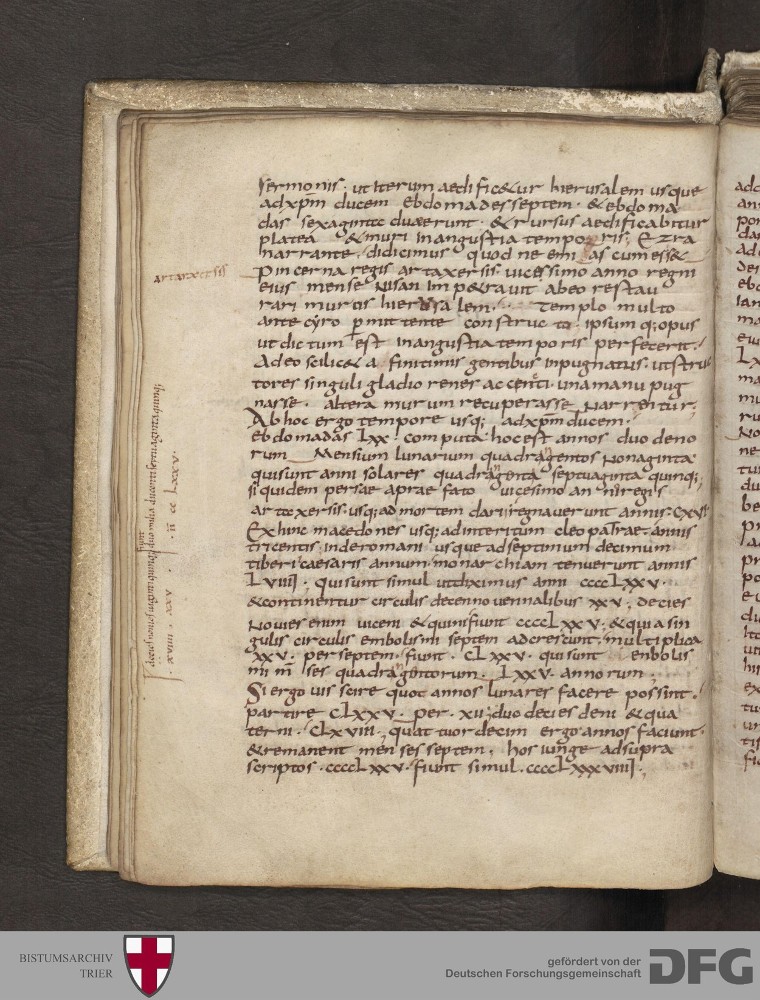 sermonis · ut iterum aedific&ur hierusalem usque
adxpm ducem ebdomades septem · & ebdoma
das sexaginta duae erunt · & rursus aedificabitur
platea & muri in angustia temporis; Ezra
narrante · didicimus quod neemias cum ess&
pincerna regis artaxersis · uicessimo anno regni
eius mense nisan imp&rauit abeo restau
rari muros hierusalem · templo multo
ante cyro pmittente constructo · ipsum q; opus
ut dictum est in angustia temporis perfecerit ·
Adeo scilic& a finitimis gentibus inpugnatus · ut stru
tores singuli gladio renes accenti · una manu pug
nasse · altera murum recuperasse narrentur;
Ab hoc ergo tempore usq; adxpm ducem ·
ebdomadas lxx · computa · hoc est annos duodeno
rum mensium lunarum quadragentos nonaginta
qui sunt anni solares quadragenta septuaginta quinq;
siquidem persae a praefato uicesimo anni regis
artaxersis · usq; ad mortem darii; regnauerunt annis · cxvi
Ex hinc macedones usq; ad interitum cleopatrae · annis
tricentis · inde romani usque ad septimum decimum
tiberii caesaris annum · monarchiam tenuerunt annis
Lviiii · qui sunt simul ut diximus anni cccclxxv ·
& continentur circulis decennouennalibus xxv · decies
nouies enim uiceni & quini fiunt cccclxxv · & quia sin
gulis circulis embolismi septem adcrescunt · multiplica
xxv · per septem · fiunt · clxxv · qui sunt enbolis
mi menses quadragentorum · lxxv · annorum ·
Si ergo uis scire quot annos lunares facere possint ·
partire clxxv · per · xii · duodecies deni & qua
terni · clxviii · quattuordecim ergo annos faciunt ·
& remanent menses septem · hos iunge ad supra
scriptos · cccclxxv · fiunt simul · cccclxxxviiii ·
artarxersis
decies nouies uiginti quinq; fiunt duo milia ducenti septuaginta quinq;
x · viiii · xxv · ii cc lxxv ·
BISTUMSARCHIV
TRIER
gefördert von der
Deutschen Forschungsgemeinschaft
DFG